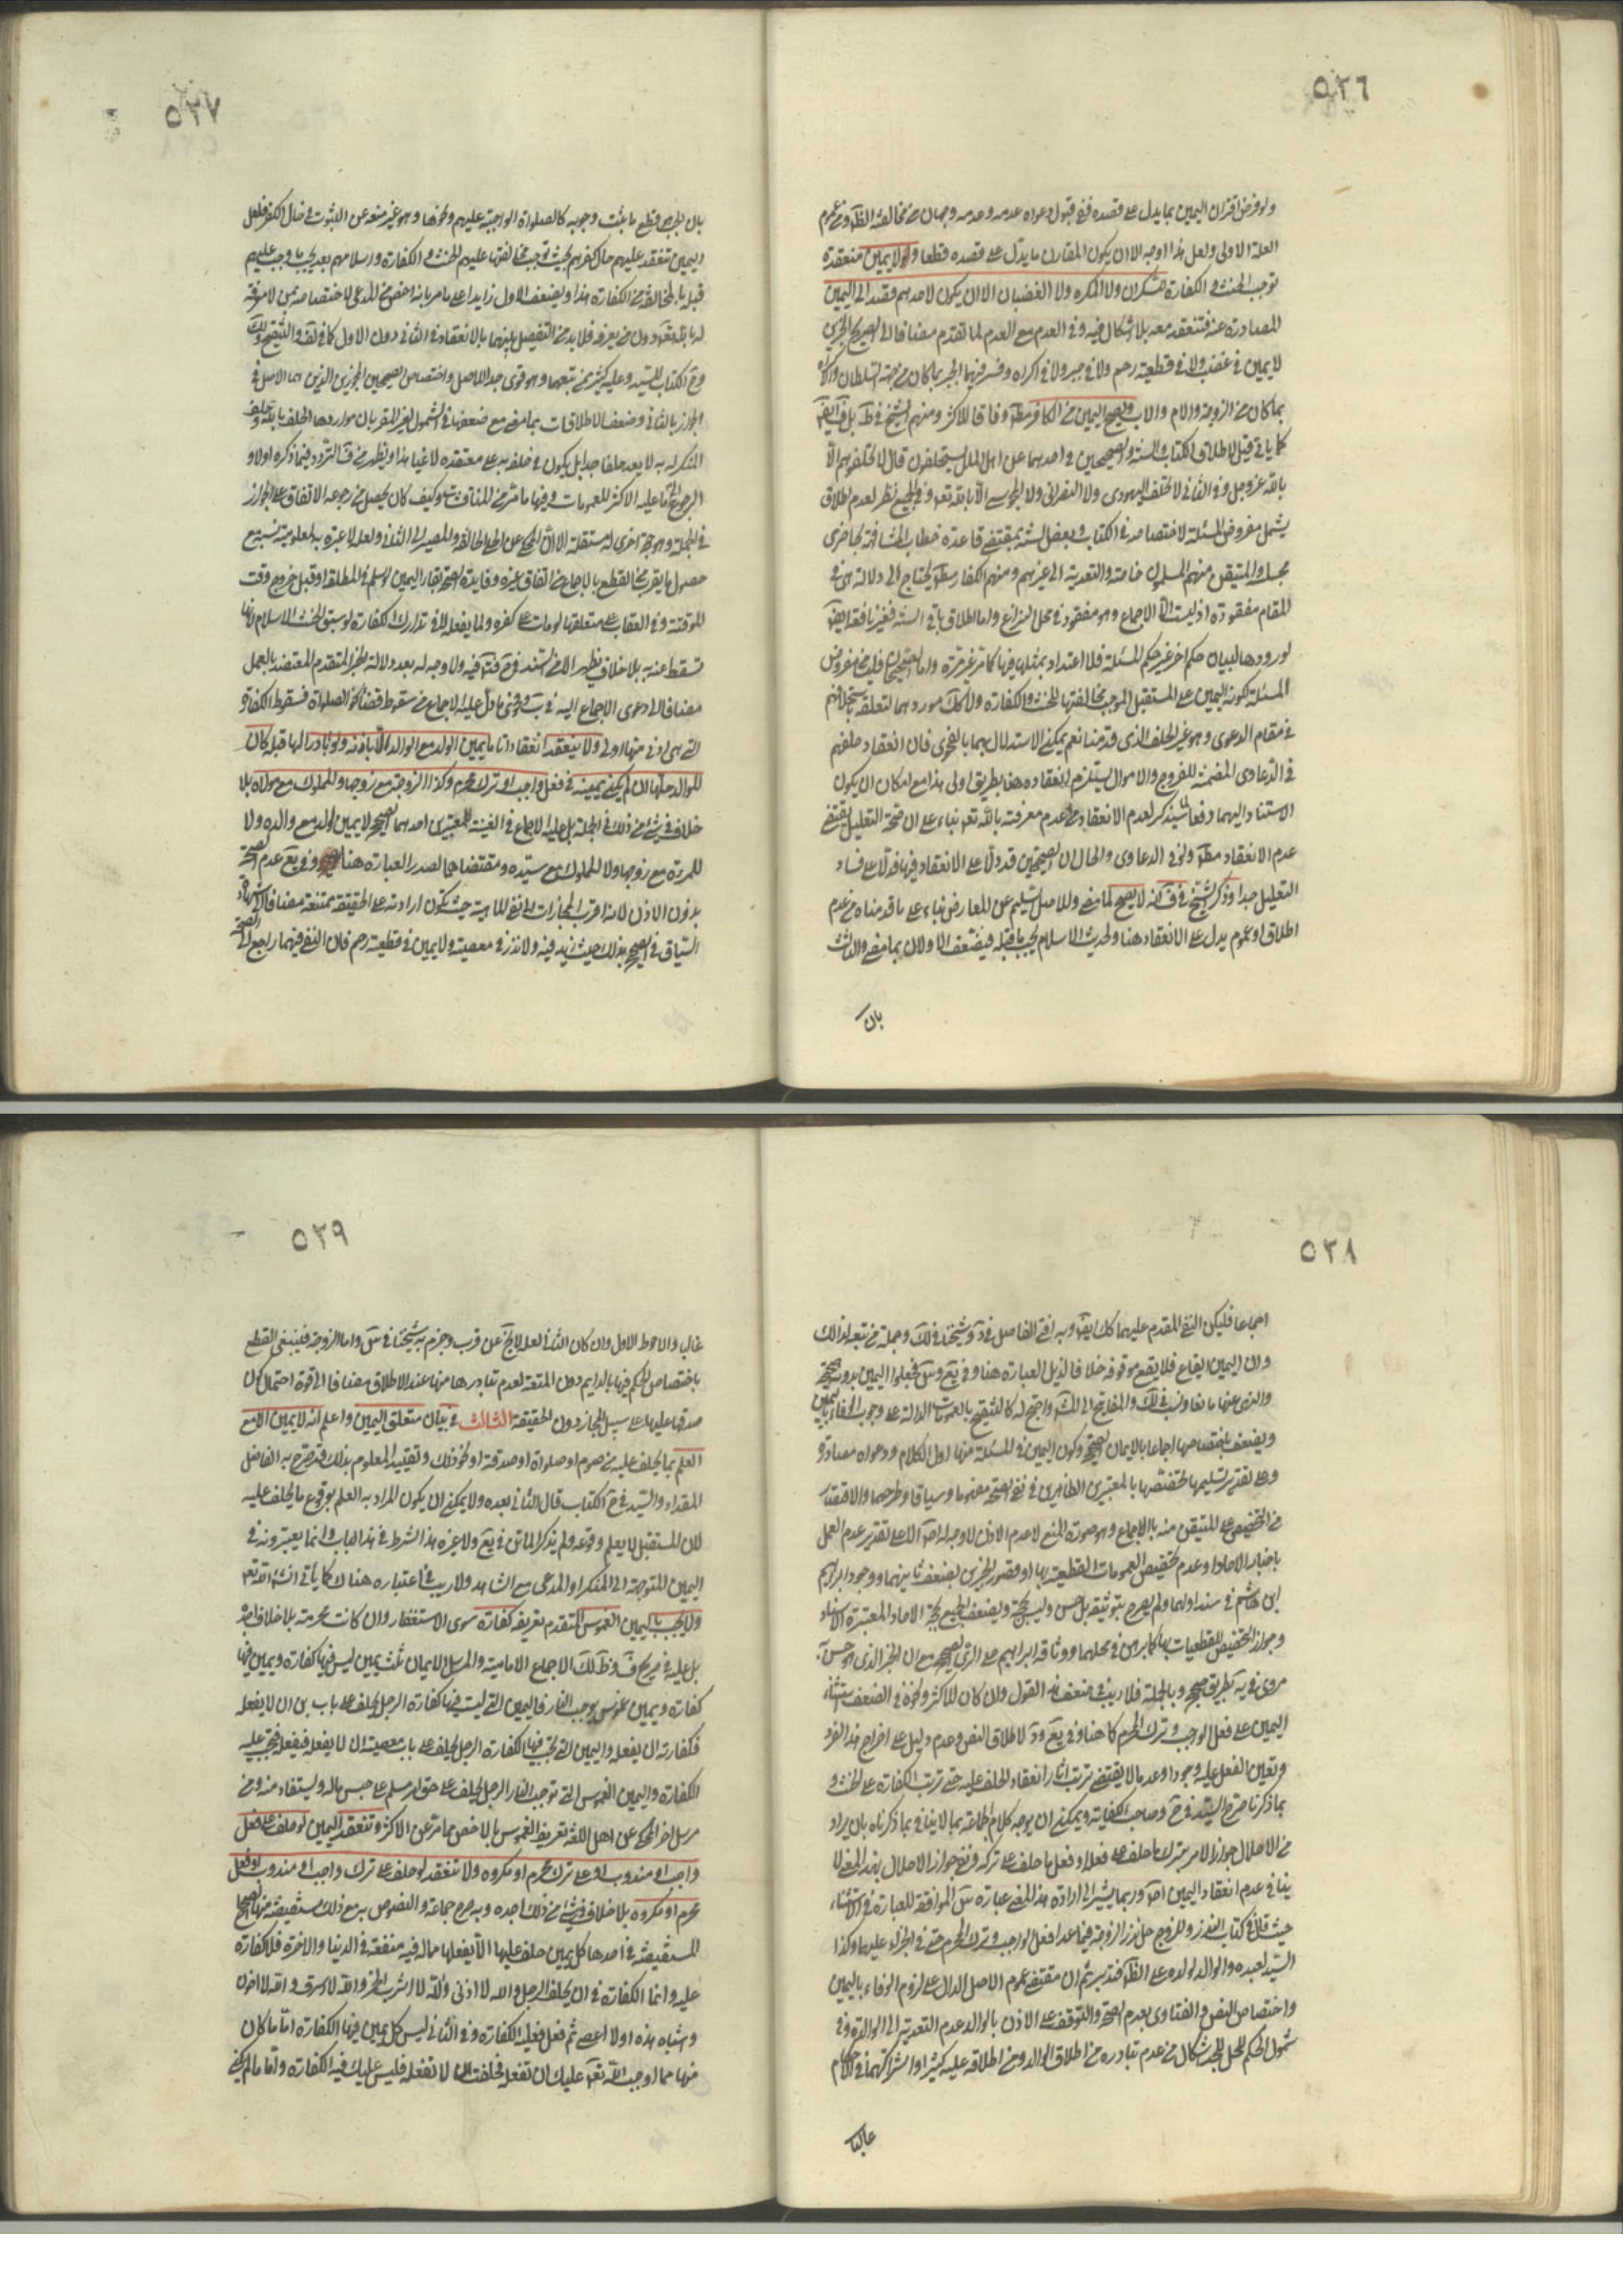 ٥٣٦
ولو فرض اقتران اليمين بما يدل على قصده ففي قبول دعواه عدمه وعدمه وجهان من مخالفته الظ ومن عموم
العلة الاولى ولعل هذا اوجه الا ان يكون المقارن ما يدل على قصده قطعا ولا يمين منعقدة
توجب الحنث والكفارة للسكران ولا المكره ولا الغضبان الا ان يكون لاحدهم قصد الى اليمين
الصادرة عنه فتنعقد معه بلا اشكال فيه وفي العدم مع العدم لما تقدم مضافا الى الصحيح الخبرين
لا يمين في غضب ولا في قطيعة رحم ولا في جبر ولا في اكراه وفسر فيهما الجبر بما كان من جهة السلطان والاكراه
بما كان من الزوجة والام والاب ويصح اليمين من الكافر مط وفاقا للاكثر ومنهم الشيخ في ط بل ف ايض
كما ياتي قيل لاطلاق الكتاب والسنة والصحيحين في احدهما عن اهل الملل يستحلفون قال لا تحلفوهم الا
بالله عز وجل وفي الثاني لا تحلف اليهودي ولا النصراني ولا المجوسي الا بالله تع وفي الجميع نظر لعدم اطلاق
يشمل مفروض المسئلة لاختصاصه في الكتاب وبعض السنة بمقتضى قاعدة خطاب المشافهة بحاضري
مجلسه والمتيقن منهم المسلمون خاصة والتعدية الى غيرهم ومنهم الكفار مط يحتاج الى دلالة هي في
المقام مفقودة اذ ليست الا الاجماع وهو مفقود في محل النزاع واما اطلاق باقي السنة فغير نافعة ايض
لورودها لبيان حكم اخر غير حكم المسئلة فلا اعتداد بمثلها فيها كما مر غير مرة واما الصحيحان فليسا مفروض
المسئلة لكونه اليمين على المستقبل الموجب مخالفتها للحنث والكفارة ولا كك موردهما لتعلقه باستحلافهم
في مقام الدعوى وهو غير الحلف الذي قدمنا نعم يمكن الاستدلال بهما بالفحوى فان انعقاد حلفهم
في الدعاوي المضمنة للفروج والاموال يستلزم انعقاده هنا بطريق اولى هذا مع امكان ان يكون
الاستناد اليهما دفعا لما يذكر لعدم الانعقاد من عدم معرفته بالله تع بناء على ان صحة التعليل يقتضي
عدم الانعقاد مط ولو في الدعاوي والحال ان الصحيحين قد دلا على الانعقاد فيها فدلا على فساد
التعليل جدا وذكر الشيخ في ف انه لا يصح لما مضى وللاصل السليم عن المعارض بناء على ما قدمناه من عدم
اطلاق او عموم يدل على الانعقاد هنا ولحديث الاسلام يجب ما قبله فيضعف الاولان بما مضى والثالث
بان
٥٣٧
بان الجب قطع ما يثبت وجوبه كالصلوة الواجبة عليهم ونحوها وهو غير منعه عن الثبوت في حال الكفر فلعل
اليمين تنعقد عليهم حال كفرهم بحيث توجب مخالفتها عليهم الحنث والكفارة واسلامهم بعد يجب ما وجب عليهم
قبله بالمخالفة من الكفارة هذا ويضعف الاول زايدا على ما مر بانه اخص من المدعى لاختصاصه بمن لا معرفة
له بالله تع دون من يعرفه فلا بد من التفصيل بينهما بالانعقاد في الثاني دون الاول كما في لف والتنقيح ولك
وشرح الكتاب للسيد وعليه كثير ممن تبعهما وهو قوي جدا للاصل واختصاص الصحيحين المجوزين الذين هما الاصل في
الجواز بالثاني وضعف الاطلاقات بما مضى مع ضعفها في الشمول لغير المقر بان مواردها الحلف بالله وحلف
المنكر له به لا يعد حلفا جدا بل يكون في حلفه به على معتقده لاغيا هذا ويظهر من ف التردد فيما ذكره اولا و
الرجوع الى ما عليه الاكثر للعمومات وفيها ما مر من المناقشات وكيف كان يحصل من رجوعه الاتفاق على الجواز
في الجملة وهو حجة اخرى له مستقلة الا ان المحكي عن الحلي المخالفة والمصير الى الثاني ولعله لا عبرة به لمعلومية نسبه مع
حصول ما يقرب من القطع بالاجماع من اتفاق غيره وفايدة الصحة بقاء اليمين لو اسلم في المطلقة او قبل خروج وقت
الموقتة وفي العقاب على متعلقها لو مات على كفره ولما يفعله لا في تدارك الكفارة لو سبق الحنث الاسلام لانها
تسقط عنه به بلا خلاف يظهر الا من السيد في شرحه فتردد فيه ولا وجه له بعد دلالة الخبر المتقدم المعتضد بالعمل
مضافا الى دعوى الاجماع اليه في ب وفحوى ما دل عليه الاجماع من سقوط قضاء نحو الصلوة فسقوط الكفارة
التي هي ادنى منها اولى ولا ينعقد انعقادا تاما يمين الولد مع الوالد الا باذنه ولو بادر اليها قبله كان
للوالد حلها ان لم يكن يمينه في فعل واجب او ترك محرم وكذا الزوجة مع زوجها والمملوك مع مولاه بلا
خلاف في شيء من ذلك في الجملة بل عليه الاجماع في الغنية للمعتبرين احدهما الصحيح لا يمين لولد مع والده ولا
للمرءة مع زوجها ولا للمملوك مع سيده ومقتضاهما كصدر العبارة هنا وفي يع عدم الصحة
بدون الاذن لانه اقرب المجازات الى نفي الماهية حيث تكون ارادته على الحقيقة ممتنعة مضافا الى شهادة
السياق في الصحيح بذلك حيث زيد فيه ولا نذر في معصية ولا يمين في قطيعة رحم فان النفي فيهما راجع الى الصحة
٥٣٨
اجماعا فليكن النفي المقدم عليهما كك ايض وبه افتى الفاضل في د وشيخنا في لك وجملة ممن تبعه لذلك
وان اليمين ايقاع فلا يقع موقوفة خلافا لذيل العبارة هنا وفي يع وس فجعلوا اليمين بدونه صحيحة
ويضعف باختصاصها اجماعا بالايمان الصحيحة وكون اليمين في المسئلة منها اول الكلام ودعواه مصادرة
وعلى تقدير تسليمها تخصيصها بالمعتبرين الظاهرين في نفي الصحة مفهوما وسياقا وطرحهما والاقتصار
في التخصيص على المتيقن منه بالاجماع وهو صورة المنع لا عدم الاذن لا وجه له اص الا على تقدير عدم العمل
باخبار الاحاد او عدم تخصيص العمومات القطعية بها او قصور الخبرين بضعف ثانيهما ووجود ابراهيم
ابن هاشم في سند اولهما ولم يصرح بتوثيقه بل حسن وليس بحجة ويضعف الجميع بحجية الاحاد المعتبرة الاسناد
وجواز التخصيص للقطعيات بها كما برهن في محلهما ووثاقة ابراهيم على الاصح مع ان الخبر الذي هو حسن به
مروي في يه بطريق صحيح وبالجملة فلا ريب في ضعف هذا القول وان كان للاكثر ونحوه في الضعف استثناء
اليمين على فعل الواجب وترك المحرم كما هنا وفي يع ود لاطلاق النص وعدم دليل على اخراج هذا الفرد
وتعين الفعل عليه وجودا وعدما لا يقتضي ترتب اثار انعقاد الحلف عليه حتى ترتب الكفارة على الحنث و
بما ذكرنا صرح السيد في شرح وصاحب الكفاية ويمكن ان يوجه كلام الجماعة بما لا ينافي ما ذكرناه بان يراد
من الاحلال جواز الامر بترك ما حلف على فعله او فعل ما حلف على تركه ونفي جواز الاحلال بهذا المعنى لا
ينافي عدم انعقاد اليمين اص وربما يشير الى ارادة هذا المعنى عبارة س الموافقة للعبارة في الاستثناء
حيث قال في كتاب النذر وللزوج حل نذر الزوجة فيما عدا فعل الواجب وترك المحرم حتى في الجزاء عليهما وكذا
السيد لعبده والوالد لولده على الظ فتدبر ثم ان مقتضى عموم الاصل الدال على لزوم الوفاء باليمين
واختصاص النص والفتاوى بعدم الصحة والتوقف على الاذن بالوالد عدم التعدية الى الوالدة وفي
شمول الحكم للجد اشكال من عدم تبادره من اطلاق الوالد ومن اطلاقه عليه كثيرا واشتراكهما في الاحكام
غالبا
٥٣٩
غالبا والاحوط الاول وان كان الثاني لعله لا يخ عن قرب وجزم به شيخنا في س واما الزوجة فينبغي القطع
باختصاص الحكم فيها بالدايم دون المتعة لعدم تبادرها منها عند الاطلاق مضافا الى قوة احتمال كون
صدقها عليها على سبيل المجاز دون الحقيقة الثالث في بيان متعلق اليمين واعلم انه لا يمين الا مع
العلم بما يحلف عليه من صوم او صلوة او صدقة او نحو ذلك وتقييد المعلوم بذلك قد صرح به الفاضل
المقداد والسيد في شرح الكتاب قال الثاني بعده ولا يمكن ان يكون المراد به العلم بوقوع ما يحلف عليه
لان المستقبل لا يعلم وقوعه ولم يذكر الماتن في يع ولا غيره هذا الشرط في هذا الباب وانما يعتبرونه في
اليمين المتوجهة الى المنكر او المدعى مع الشاهد ولا ريب في اعتباره هناك كما ياتي انش الله تع
ولا يجب باليمين الغموس المتقدم تعريفه كفارة سوى الاستغفار وان كانت محرمة بلا خلاف اجده
بل عليه في صريح ف وظ لك الاجماع الامامية والمرسل الايمان ثلث يمين ليس فيها كفارة ويمين فيها
كفارة ويمين غموس يوجب النار فاليمين التي ليست فيها كفارة الرجل يحلف على باب بر ان لا يفعله
فكفارته ان يفعله واليمين التي تجب فيها الكفارة الرجل يحلف على باب معصية ان لا يفعله فيفعله فيجب عليه
الكفارة واليمين الغموس التي توجب النار الرجل يحلف على حق امرء مسلم على حبس ماله ويستفاد منه ومن
مرسل اخر المحكي عن اهل اللغة تعريف الغموس بالاخص مما مر عن الاكثر وتنعقد اليمين لو حلف على فعل
واجب او مندوب او على ترك محرم او مكروه ولا تنعقد لو حلف على ترك واجب او مندوب او فعل
محرم او مكروه بلا خلاف في شيء من ذلك اجده وبه صرح جماعة والنصوص به مع ذلك مستفيضة منها الصحاح
المستفيضة في احدها كل يمين حلف عليها الا يفعلها مما له فيه منفعة في الدنيا والاخرة فلا كفارة
عليه وانما الكفارة في ان يحلف الرجل والله لا ازني والله لا اشرب الخمر والله لا اسرق والله لا اخون
واشباه هذه او لا اعصي ثم فعل فعليه الكفارة وفي الثاني ليس كل يمين فيها الكفارة اما ما كان
منها مما اوجب الله تع عليك ان تفعله فحلفت ان لا تفعله فليس عليك فيه الكفارة واما ما لم يكن